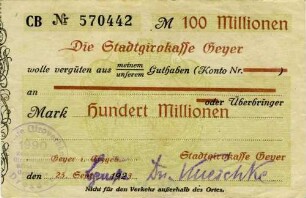 CB № 570442 M 100 Millionen
Die Stadtgirokasse Geyer
wolle vergüten aus meinem unserem Guthaben (Konto Nr.
an
oder Überbringer
Mark Hundert Millionen
Geyer i. Stadtgirokasse Geyer
den 25. 1923
Nicht für den Verkehr ausserhalb des Ortes.